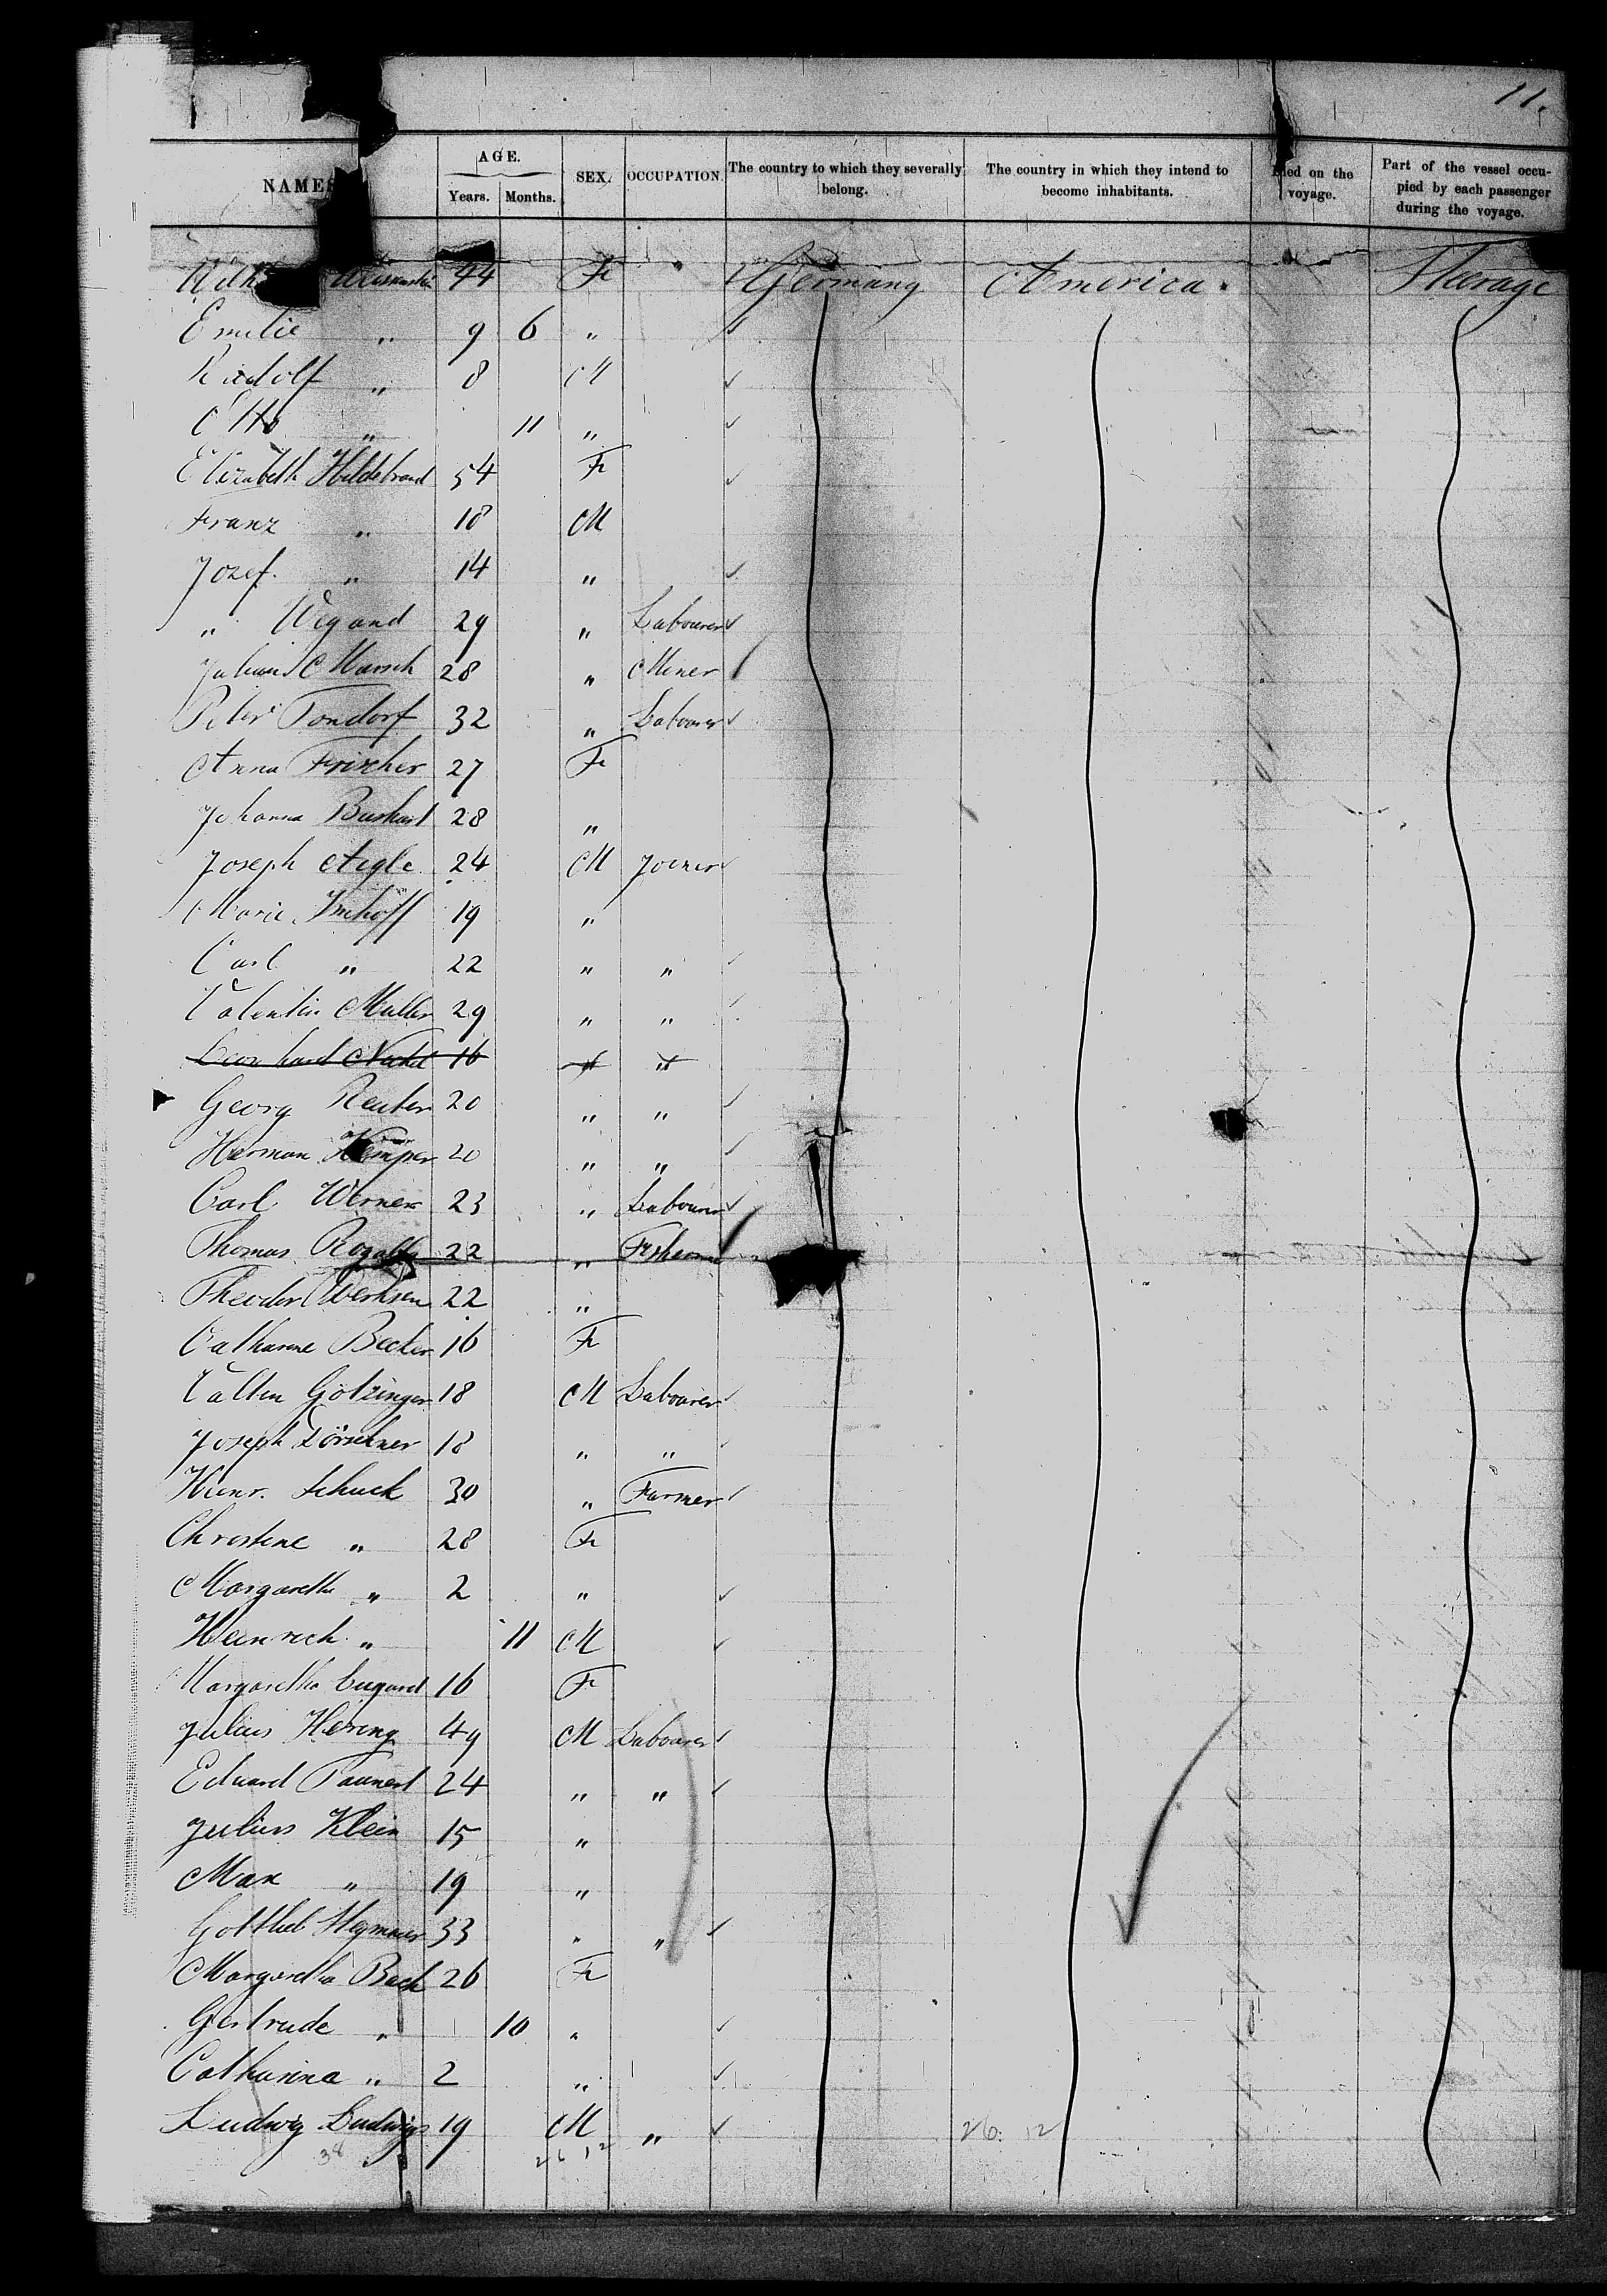 11.
NAMES
AGE.
Years. Months.
SEX. OCCUPATION.
The country to which they severally belong.
The country in which they intend to become inhabitants.
Died on the voyage.
Part of the vessel occupied by each passenger during the voyage.
44 F Germany America. Sterage
Emilie " 9 6 "
Rudolf " 8 M
Otto " 11 "
Elizabeth Hildebrand 54 F
Franz " 18 M
Jozef. " 14 "
" Wegand 29 " Labourer
Marsch 28 " Miner
Peter Tondorf 32 " Labourer
Anna Frischer 27 F
Johanna Burkart 28 "
Joseph Aigle 24 M Joiner
Marie Imhoff 19 "
Carl " 22 " "
Valentin Muller 29 " "
16 " "
Georg Reuter 20 " "
Herman Kemper 20 " "
Carl Werner 23 " Labourer
Thomas 22 "
Theodor 22 "
Catharine Becker 16 F
Götzinger 18 M Labourer
Joseph Dörschner 18 " "
Heinr. Schuck 30 " Farmer
Christine " 28 F
Margarethe " 2 "
Heinrich " 11 M
Margaretha 16 F
Julius Hering 49 M Labourer
Eduard 24 " "
Julius Klein 15 "
Max " 19 "
Gottlieb 33 " "
Margaretha Bach 26 F
Gertrude " 10 "
Catharina " 2 "
Ludwig Ludwigs 19 M "
38 26 12 26. 12